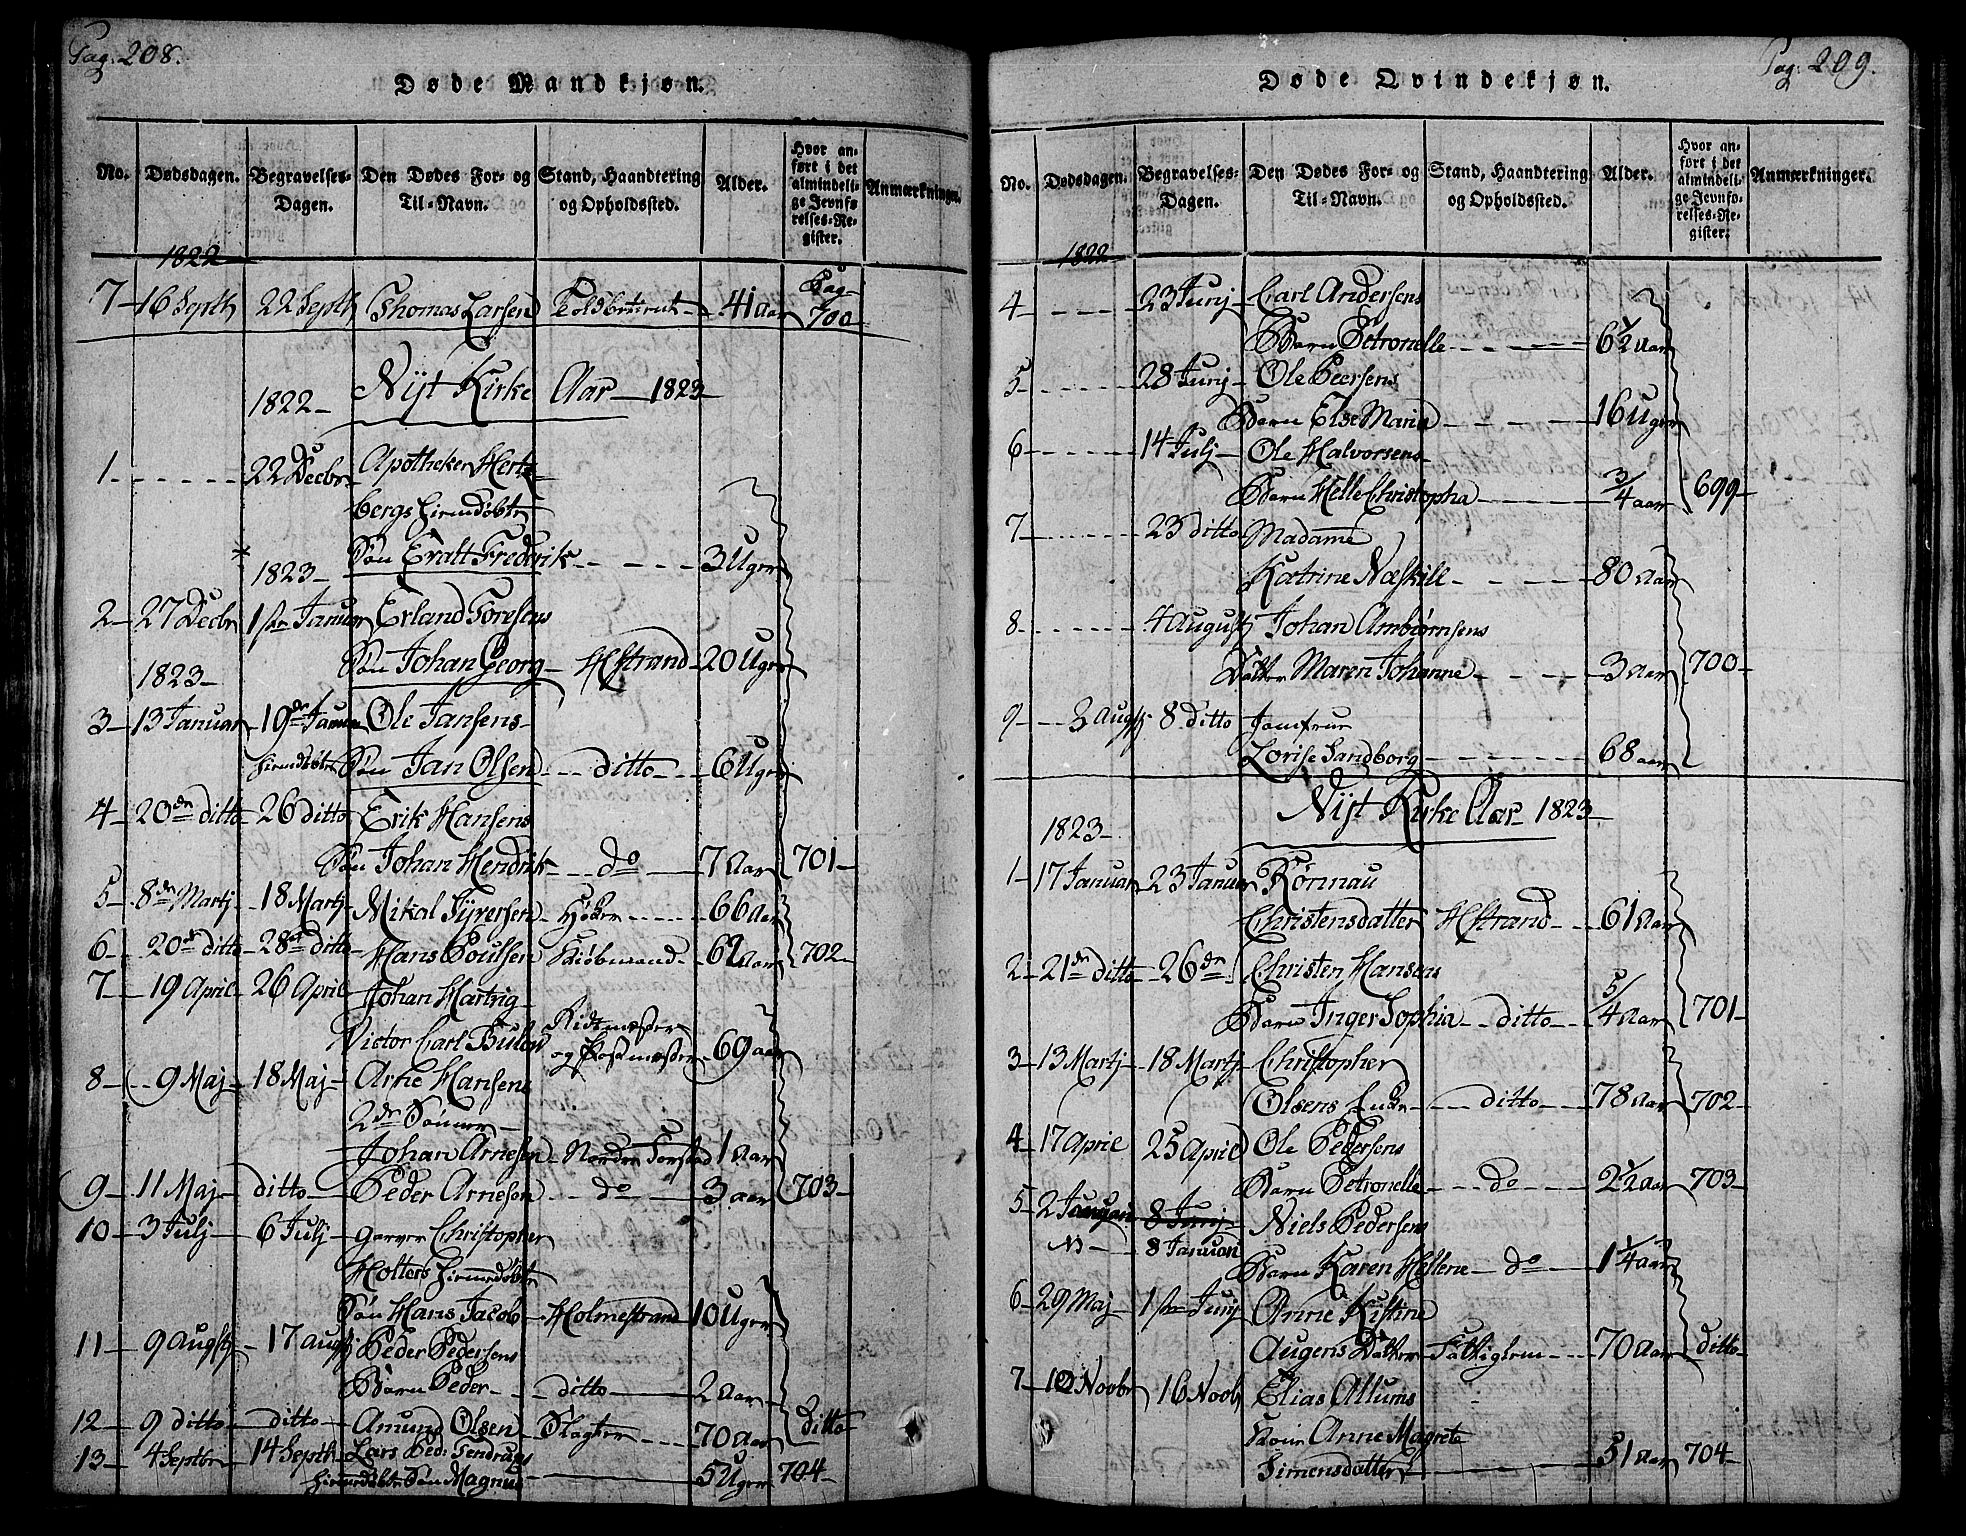 Pag. 208.
Døde Mandkjøn.
No. Dødsdagen. Begravelses-Dagen. Den Dødes For- og Til-Navn. Stand, Haandtering og Opholdssted. Alder. Hvor anført i det almindelige Jevnførelses-Register. Anmærkninger.
1822
7 - 16 Septb 22 Septb Thomas Larsen 41 aar Pag. 700
Nyt Kirke Aar - 1823
1822 -
1 - - - 22 Decbr Apotheker Hertz-
bergs hiemdøbte
Søn Eratt Frederik - - - 3 Uger
1823 -
2 - 27 Decbr 1ste Januar Erland Toresens
Søn Johan Georg - HStrand - 20 Uger
1823 -
3 - 13 Januar 19de Januar Ole Jansens
hiemdøbte Søn Jan Olsen - - ditto - 6 Uger
4 - 20de ditto 26 ditto Erik Hansens
Søn Johan Hendrik - - do - 7 Aar 701 -
5 - 8de Martj 18 Martj Mikal Syversen Høker - - - 66 Aar
6 - 20de ditto 28de ditto Hans Poulsen Kiøbmand - 62 Aar 702 -
7 - 19 April 26 April Johan Hartvig
Victor Carl Bulow Ridtmester
og Postmester - 69 aar
8 - 9 Maj 18 Maj - Arne Hansens
2de Sønner -
Johan Arnesen - Nordre Torstad 1 Aar
9 - 11 Maj - ditto - Peder Arnesen - - do - 3 aar 703 -
10 - 3 Julj 6 Julj - garver Christopher
Holters hiemdøbte
Søn Hans Jacob - Holmestrand 10 Uger
11 - 9 Augstj 17 Augstj Peder Pedersens
Barn Peder - - ditto - 2 Aar
12 - 9 ditto - ditto - Amund Olsen - Slagter - - - 70 Aar ditto
13 - 4 Septbr 14 Septb Lars Ped:
hiemdøbte Søn Magnus - 5 Uger 704 -
Pag. 209.
Døde Qvindekjøn.
No. Dødsdagen. Begravelses-Dagen. Den Dødes For- og Til-Navn. Stand, Haandtering og Opholdssted. Alder. Hvor anført i det almindelige Jevnførelses-Register. Anmærkninger.
1822
4 - - - 23 Junj Carl Andersens
Barn Petronelle - - - 6½ Aar
5 - - - 28 Junj Ole Peersens
Barn Else Maria - - - 16 Uger
6 - - - 14 Julj Ole Halvorsens
Barn Helle Christopha - 3/4 aar 699 -
7 - - - 23 ditto Madame
Katrine Næskill - - - 80 Aar
8 - - - 4 August Johan Ambiørnsens
Datter Maren Johanne - - - 3 Aar 700 -
9 - 3 Augstj 8 ditto Jomfrue
Lovise Sandborg - - - 68 aar
Nyt Kirke Aar 1823 -
1823 -
1 - 17 Januar 23 Januar Rønnau
Christensdatter HStrand - - 61 Aar
2 - 21de ditto - 26de Christen Hansens
Barn Inger Sophia - ditto - 5/4 Aar 701 -
3 - 13 Martj 18 Martj Christopher
Olsens Enke - - - ditto - 78 Aar 702 -
4 - 17 April 25 April Ole Pedersens
Barn Petronelle - - do - 2½ Aar 703 -
5 - 2 Januari 8 Junj Niels Pedersens
N - 8 Januari Barn Karen Hellene - do - 1¼ Aar
6 - 29 Maj - 1ste Junj Anne Kistine
Augens Datter - Fattiglem - - - 70 Aar ditto -
7 - 10 Novbr 16 Novb Elias Allums
Kone Anne Magrete
Simensdatter - 51 Aar 704 -